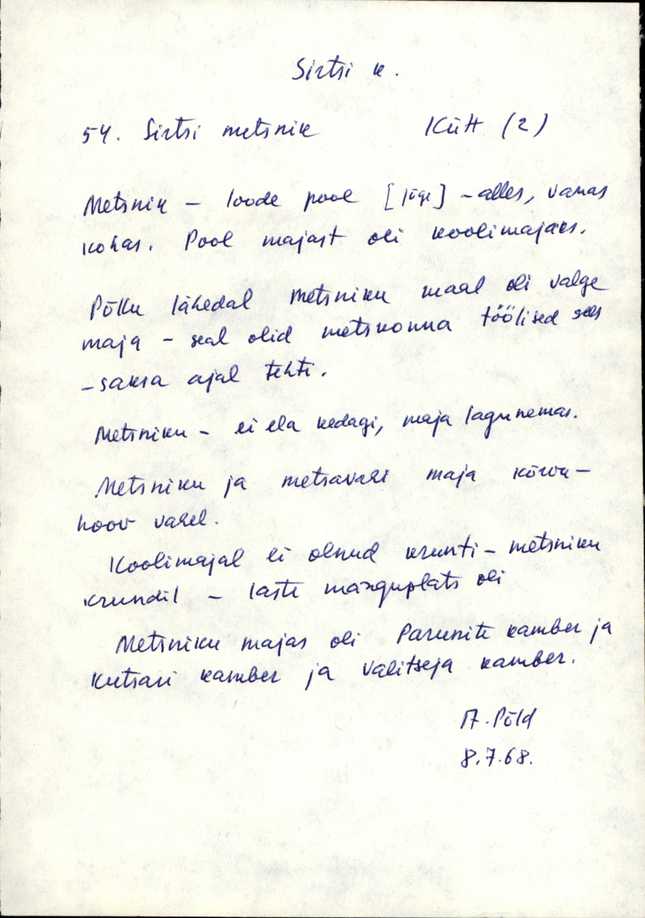 Sirtsi k.
54. Sirtsi metsnik Kütt (2)
Metsnik – loode pool [jõgi] – alles, vanas
kohas. Pool majast oli koolimajaks.
Põllu lähedal metsniku maal oli valge
maja – seal olid metskonna töölised sees
– saksa ajal tehti.
Metsniku – ei ela kedagi, maja lagunemas.
Metsniku ja metsavahi maja kõrvu –
hoov vahel.
Koolimajal ei olnud krunti – metsniku
krundil – laste mänguplats oli
Metsniku majas oli Parunite kamber ja
kutsari kamber ja valitseja kamber.
A. Põld
8.7.68.